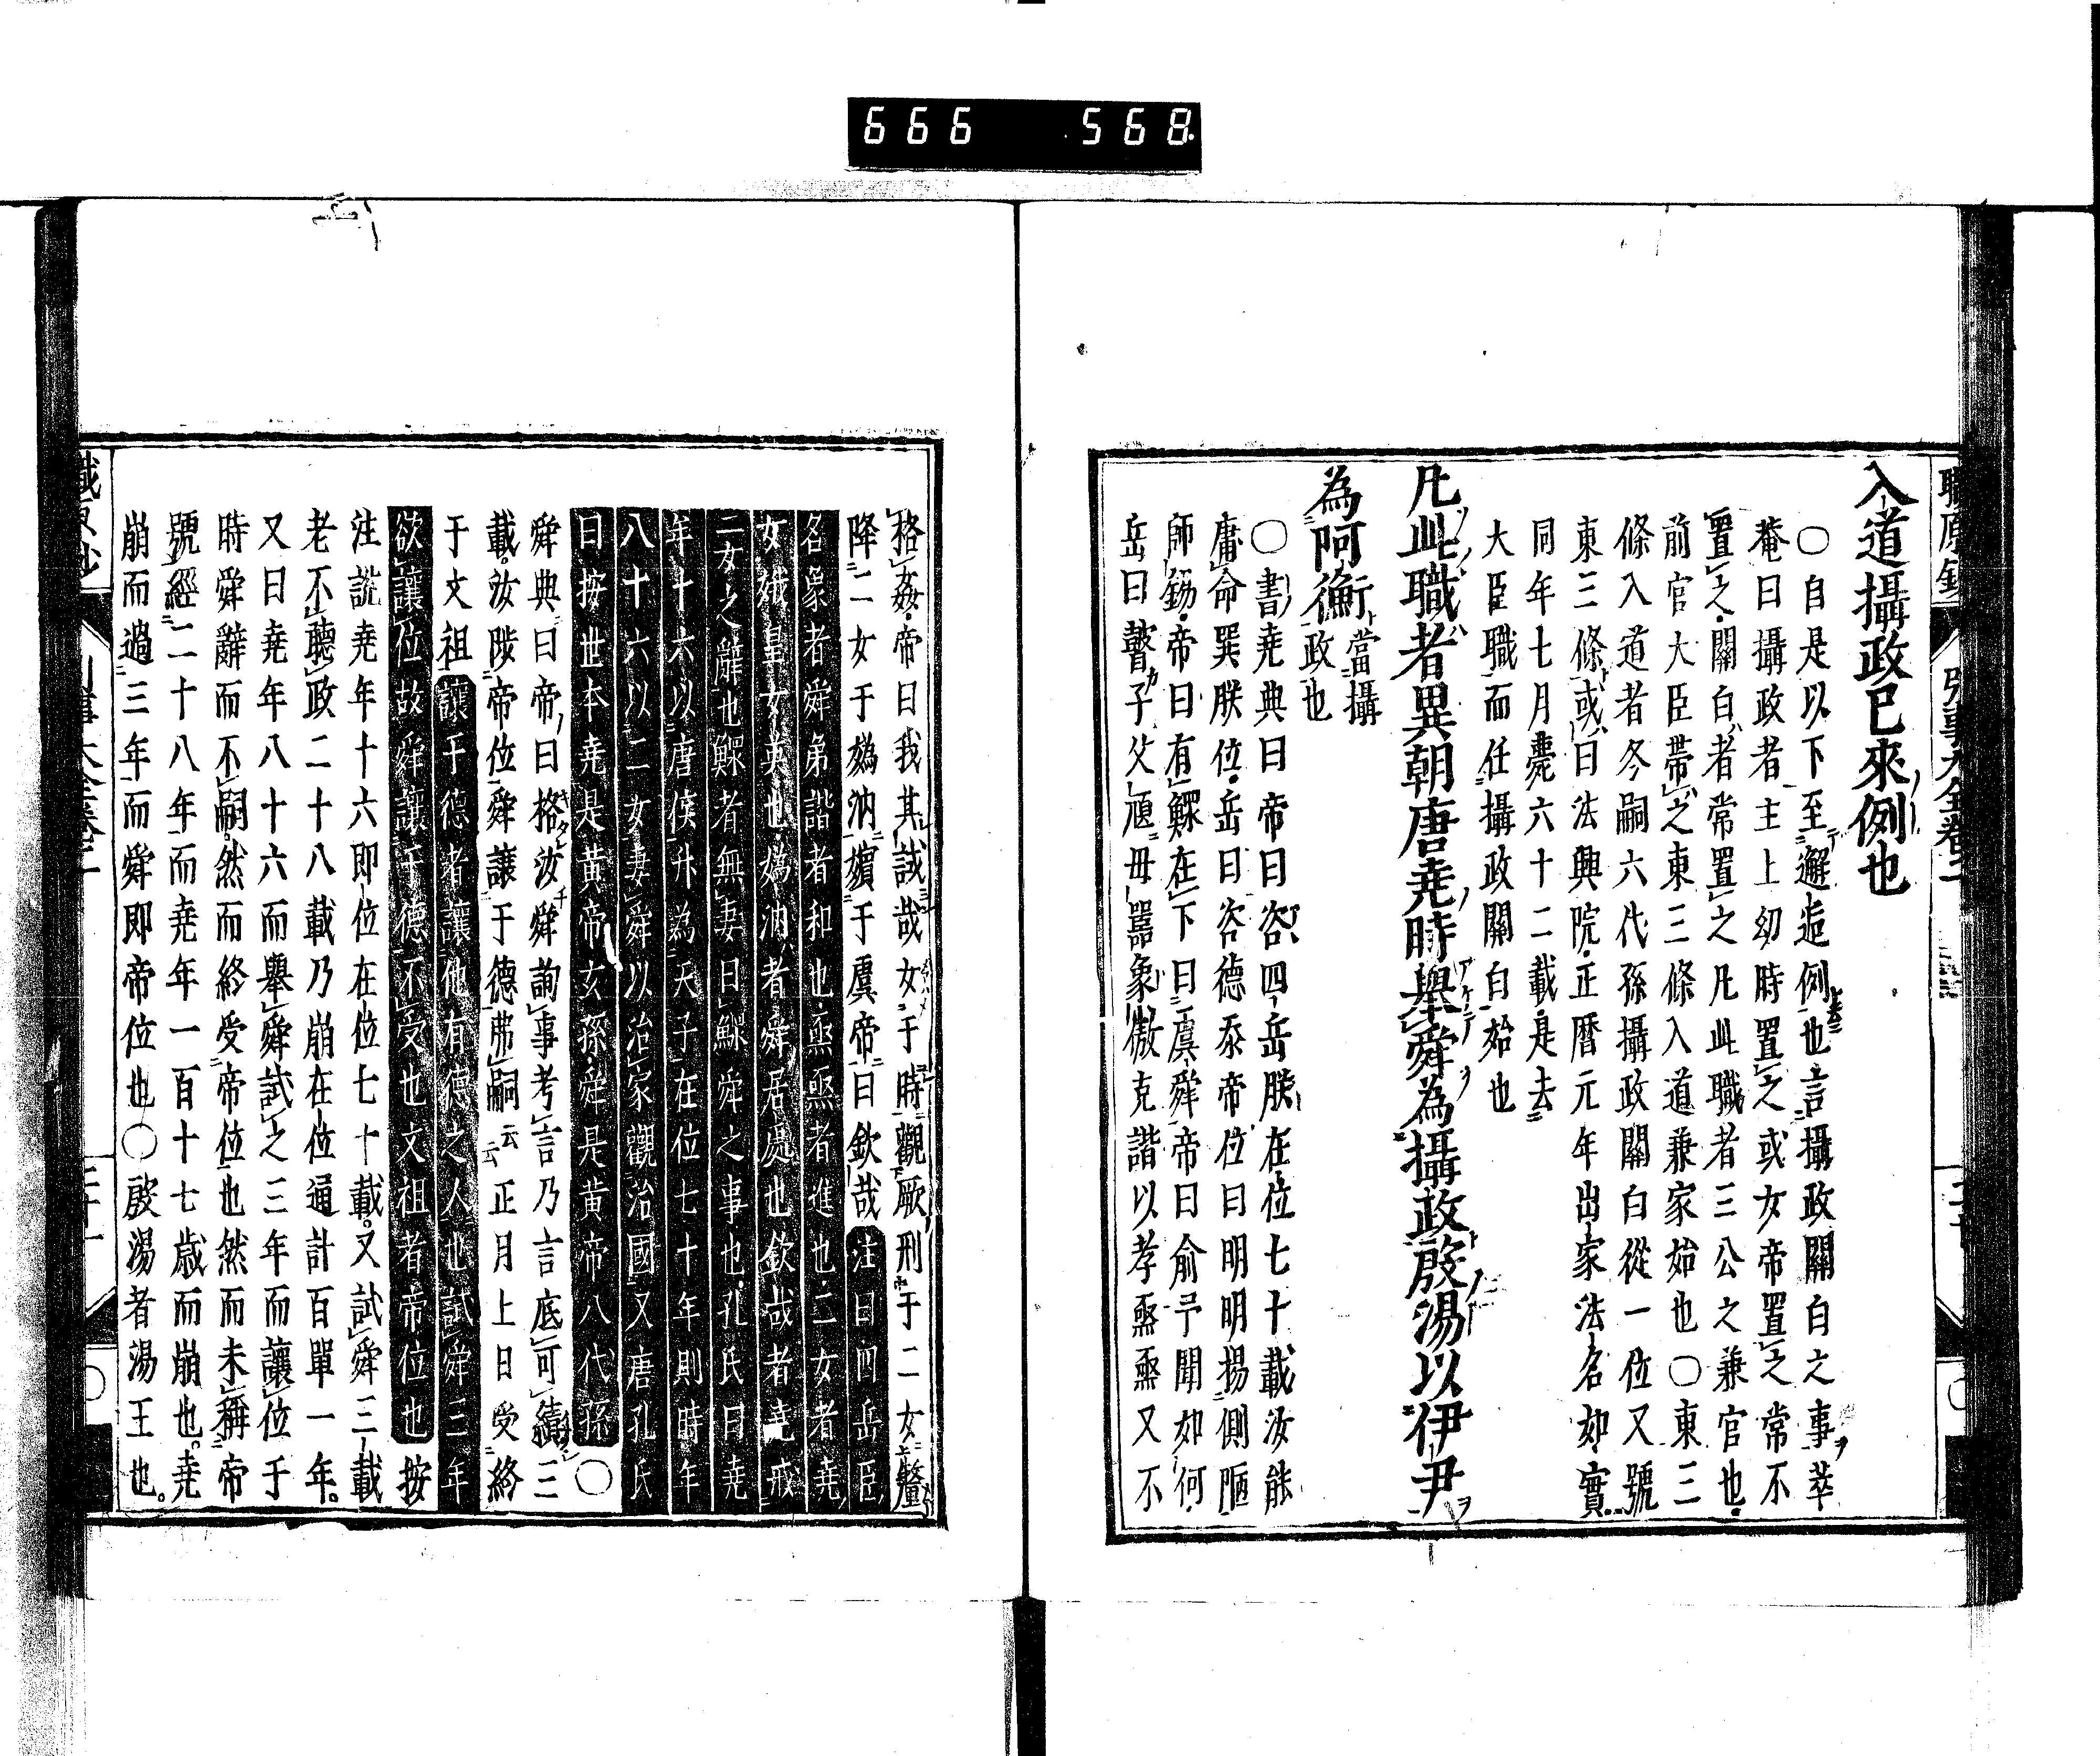 666 568
入道攝政已來例也
〇自是以下至邂逅例也言攝政關白之事莘
菴曰攝政者主上幼時置之或女帝置之常不
置之關白者常置之凡此職者三公之兼官也
前官大臣帶之東三條入道兼家始也〇東三
條入道者冬嗣六代孫攝政關白從一位又號
東三條或曰法興院正曆元年出家法名如實
同年七月薨六十二載是去
大臣職而任攝政關白始也
凡此職者異朝唐堯時舉舜為攝政殷湯以伊尹
為阿衡當攝政也
〇書堯典曰帝曰咨四岳朕在位七十載汝能
庸命巽朕位岳曰否德忝帝位曰明明揚側陋
師錫帝曰有鰥在下曰虞舜帝曰俞予聞如何
岳曰瞽子父頑母嚚象傲克諧以孝烝烝又不
格姦帝曰我其試哉女于時觀厥刑于二女釐
降二女于媯汭嬪于虞帝曰欽哉注曰四岳臣
名象者舜弟諧者和也烝烝者進也二女者堯
女娥皇女英也媯汭者舜居處也欽哉者堯戒
二女之辭也鰥者無妻曰鰥舜之事也孔氏曰堯
年十六以唐侯升為天子在位七十年則時年
八十六以二女妻舜以治家觀治國又唐孔氏
曰按世本堯是黃帝女孫舜是黃帝八代孫〇
舜典曰帝曰格汝舜詢事考言乃言底可績三
載汝陟帝位舜讓于德弗嗣云云正月上日受終
于文祖讓于德者讓他有德之人也試舜三年
欲讓位故舜讓于德不受也文祖者帝位也按
注說堯年十六即位在位七十載又試舜三載
老不聽政二十八載乃崩在位通計百單一年
又曰堯年八十六而舉舜試之三年而讓位于
時舜辭而不嗣然而終受帝位也然而未稱帝
號經二十八年而堯年一百十七歲而崩也堯
崩而過三年而舜即帝位也〇殷湯者湯王也